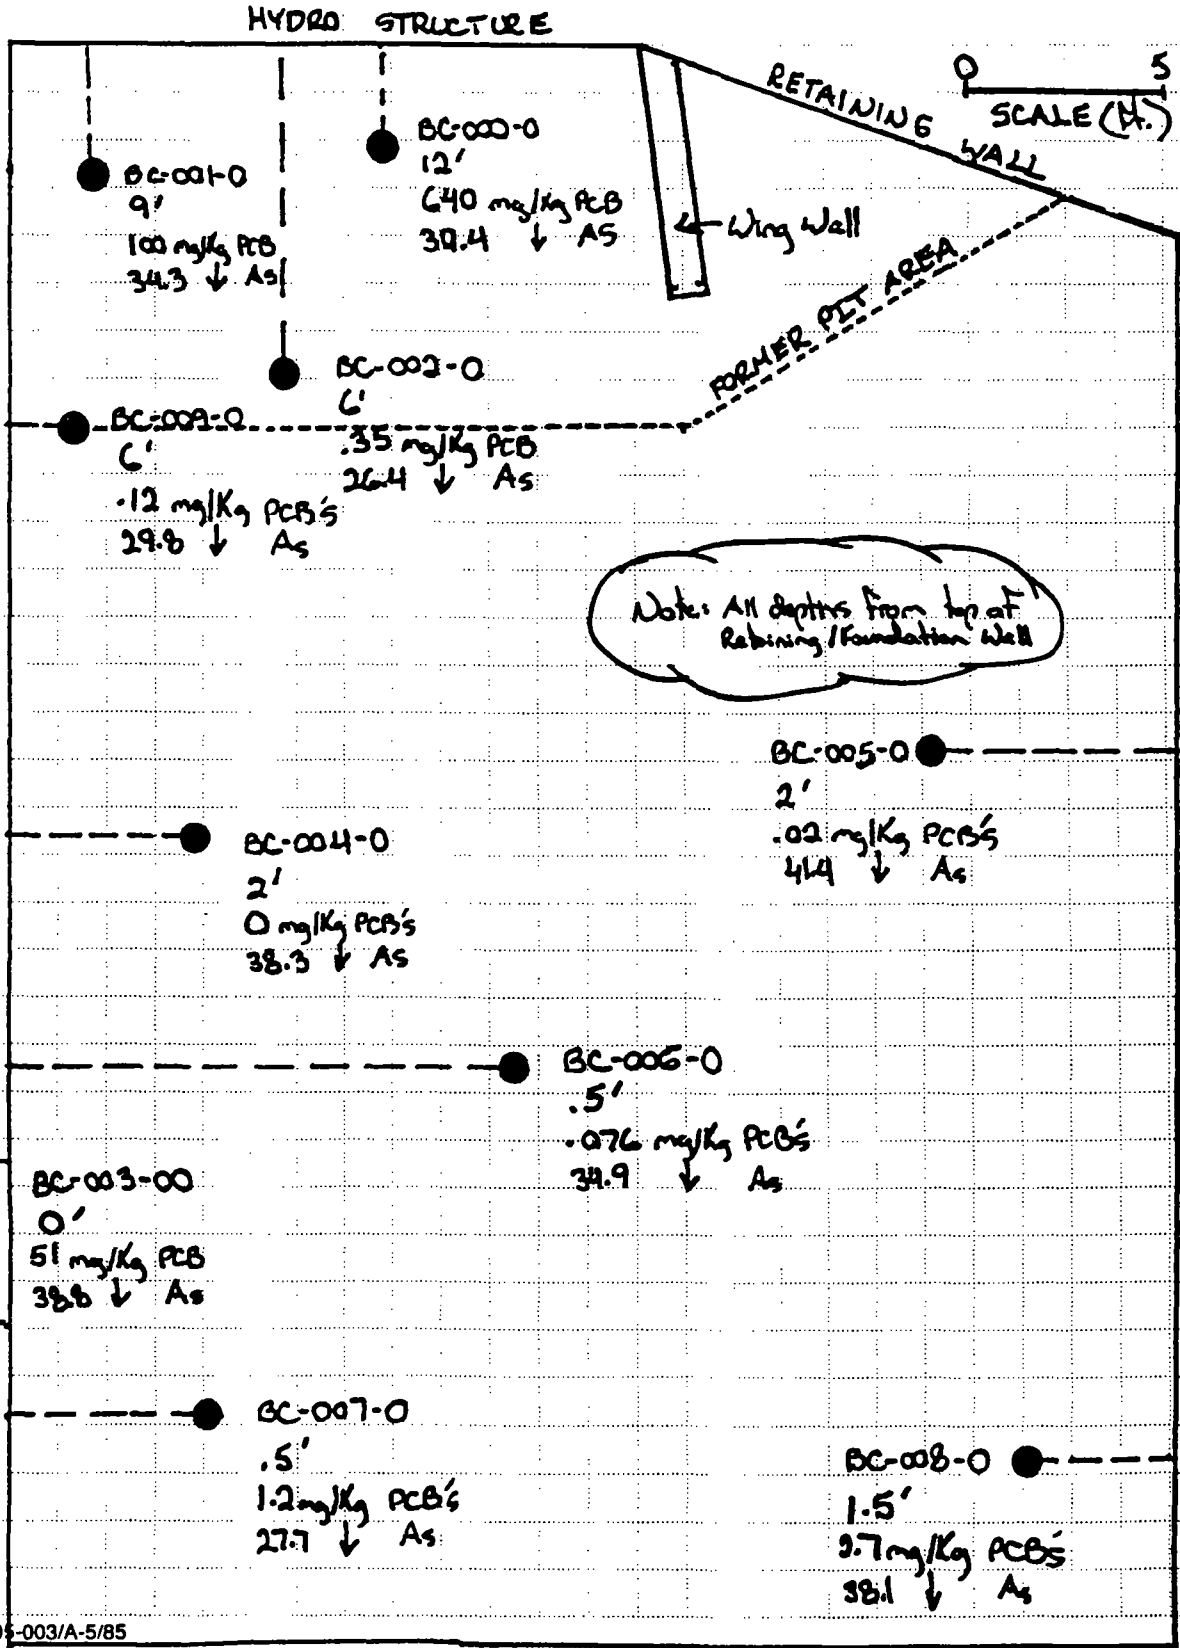 HYDRO STRUCTURE
0 5
SCALE (ft.)
RETAINING WALL
BC-000-0
12'
640 mg/Kg PCB
↓ AS
BC-001-0
9'
100 mg/Kg PCB
34.3 ↓ As
← Wing Wall
FORMER PIT AREA
BC-002-0
6'
.35 mg/Kg PCB
26.4 ↓ As
BC-009-0
6'
.12 mg/Kg PCB's
29.8 ↓ As
Note: All depths from top of
Retaining/Foundation Wall
BC-005-0
2'
.02 mg/Kg PCB's
↓ As
BC-004-0
2'
0 mg/Kg PCB's
38.3 ↓ As
BC-006-0
.5'
.076 mg/Kg PCB's
34.9 ↓ As
BC-003-00
0'
51 mg/Kg PCB
38.8 ↓ As
BC-007-0
.5'
1.2 mg/Kg PCB's
27.7 ↓ As
BC-008-0
1.5'
mg/Kg PCB's
38.1 ↓ As
-003/A-5/85